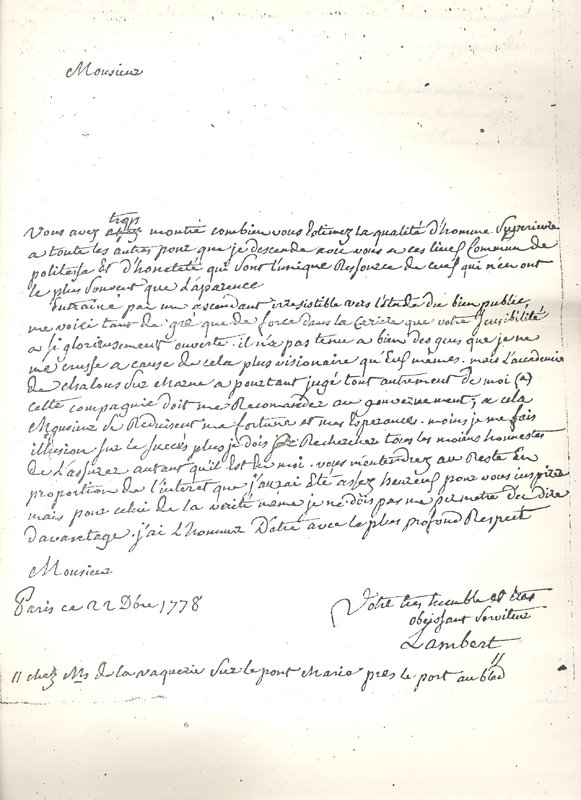 Monsieur
trop
Vous avez assez montré combien vous Estimez la qualité d'homme Superieure
a toute les autres pour que je descende avec vous a ces lieux Commun de
politesse Et d'honeteté qui sont l'unique Ressource de ceux qui n'en ont
le plus souvent que l'aparence
Entrainé par un ascendant irresistible vers l'Etude du bien public,
me voici tant de gré que de force dans la Cariere que votre sensibilité
a si glorieusement ouverte. il n'a pas tenu a bien des gens que je ne
me crusse a cause de cela plus visionaire qu'Eux mêmes. mais l'academie
de chalons sur marne a pourtant jugé tout autrement de moi (a)
cette compagnie doit me Recomander au gouvernement; a cela
Monsieur se Reduisent ma fortune et mes Esperances. moins je me fais
illusion sur le succès plus je dois Rechercher tous les moiens honnestes
de l'assurer autant qu'il Est de moi. vous m'entendrez au Reste En
proportion de l'interet que j'aurai Eté assez heureux pour vous inspirer
mais pour celui de la verité même je ne dois pas me permetre d'en dire
davantage. j'ai L'honneur D'etre avec le plus profond Respect
Monsieur
Paris ce 22 Dbre 1778
Votre tres humble et tres
obeissant serviteur
Lambert
// chez Mr de la vaquerie sur le pont Marie pres le port au bled //